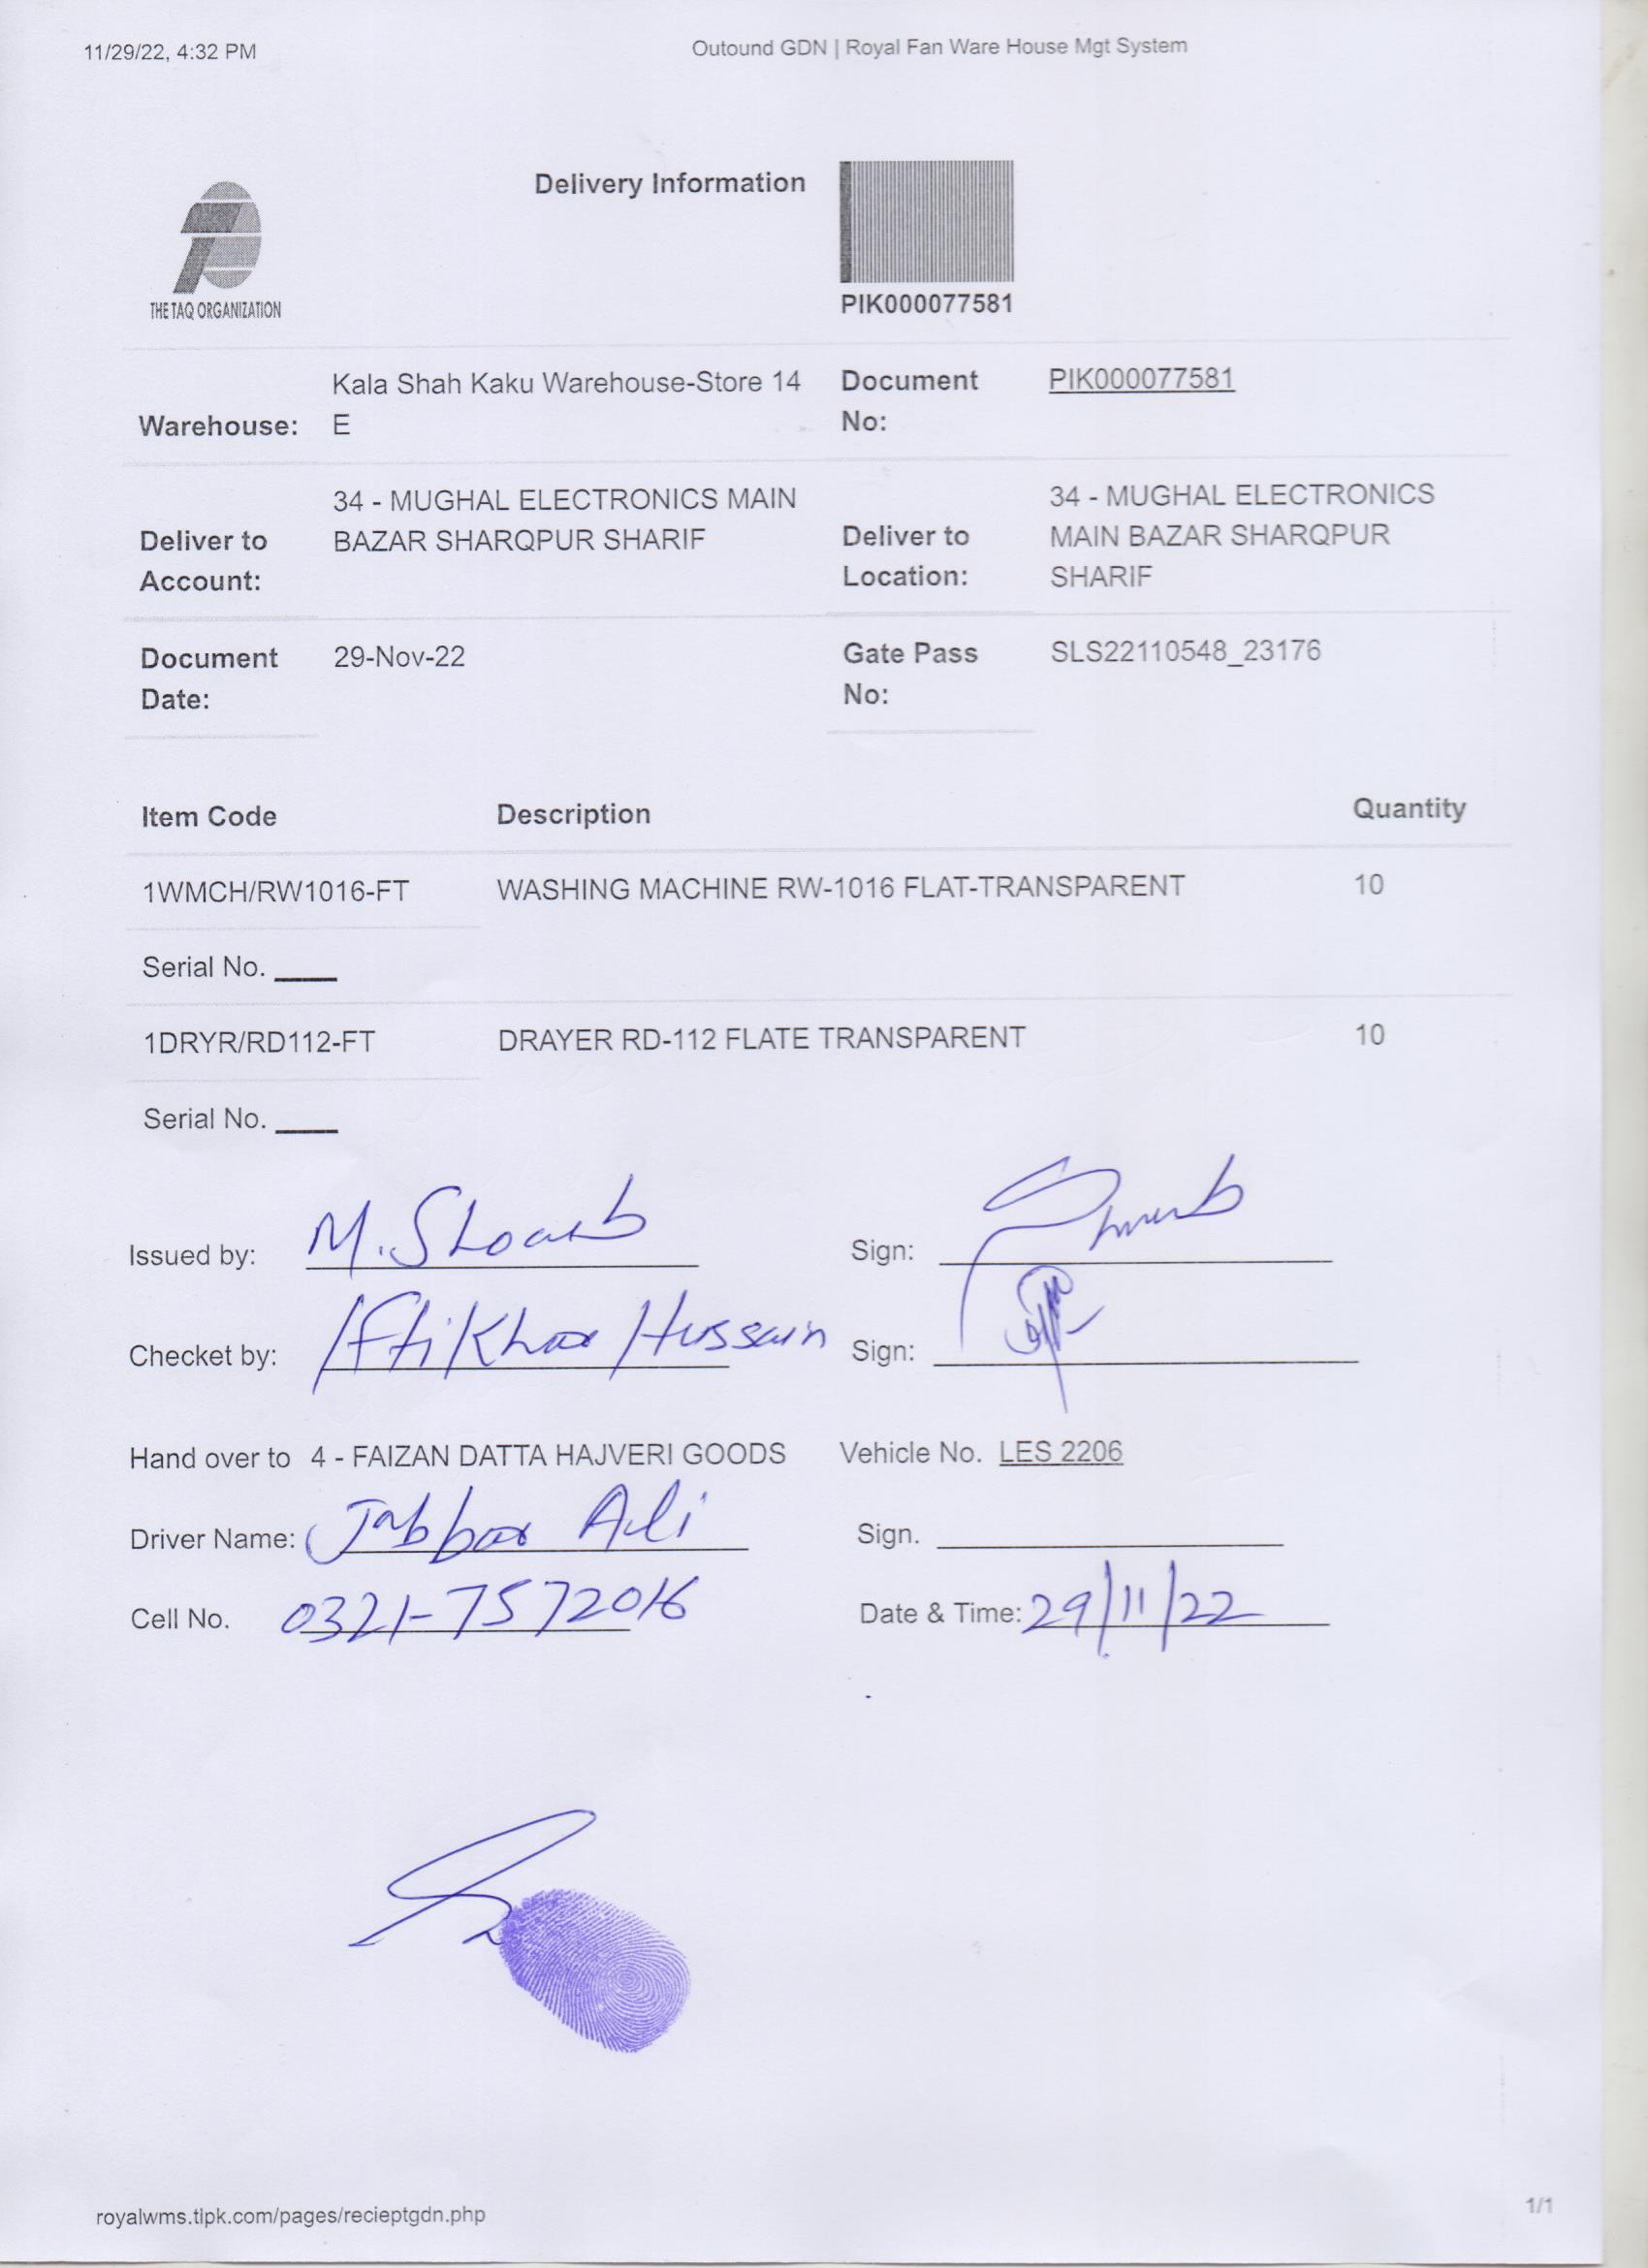 11/29/22, 4:32 PM
Outound GDN | Royal Fan Ware House Mgt System
THE TAQ ORGANIZATION
Delivery Information
PIK000077581
Warehouse: Kala Shah Kaku Warehouse-Store 14
E
Document
No: PIK000077581
Deliver to
Account: 34 - MUGHAL ELECTRONICS MAIN
BAZAR SHARQPUR SHARIF
Deliver to
Location: 34 - MUGHAL ELECTRONICS
MAIN BAZAR SHARQPUR
SHARIF
Document
Date: 29-Nov-22
Gate Pass
No: SLS22110548_23176
Item Code Description Quantity
1WMCH/RW1016-FT WASHING MACHINE RW-1016 FLAT-TRANSPARENT 10
Serial No. ____
1DRYR/RD112-FT DRAYER RD-112 FLATE TRANSPARENT 10
Serial No. ____
Issued by: M. Shoaib Sign:
Checket by: Iftikhar Hussain Sign:
Hand over to 4 - FAIZAN DATTA HAJVERI GOODS Vehicle No. LES 2206
Driver Name: Jabbar Ali Sign.
Cell No. 0321-7572016 Date & Time: 29/11/22
royalwms.tlpk.com/pages/recieptgdn.php
1/1